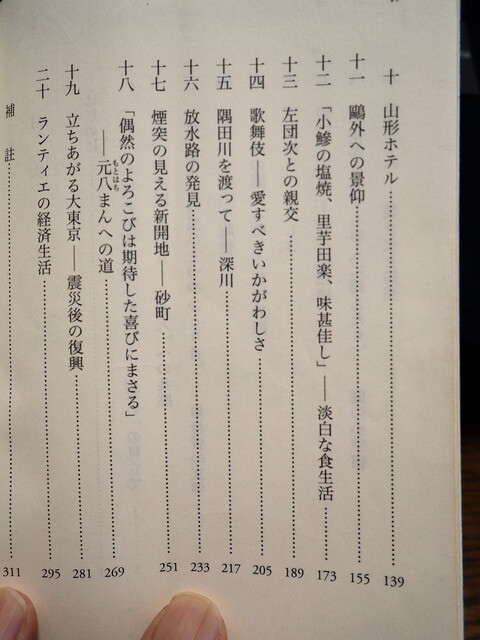 十 山形ホテル……139
十一 鷗外への景仰……155
十二 「小鰺の塩焼、里芋田楽、味甚佳し」――淡白な食生活……173
十三 左団次との親交……189
十四 歌舞伎――愛すべきいかがわしさ……205
十五 隅田川を渡って――深川……217
十六 放水路の発見……233
十七 煙突の見える新開地――砂町……251
十八 「偶然のよろこびは期待した喜びにまさる」
――元八まんへの道……269
もとはち
十九 立ちあがる大東京――震災後の復興……281
二十 ランティエの経済生活……295
補註……311